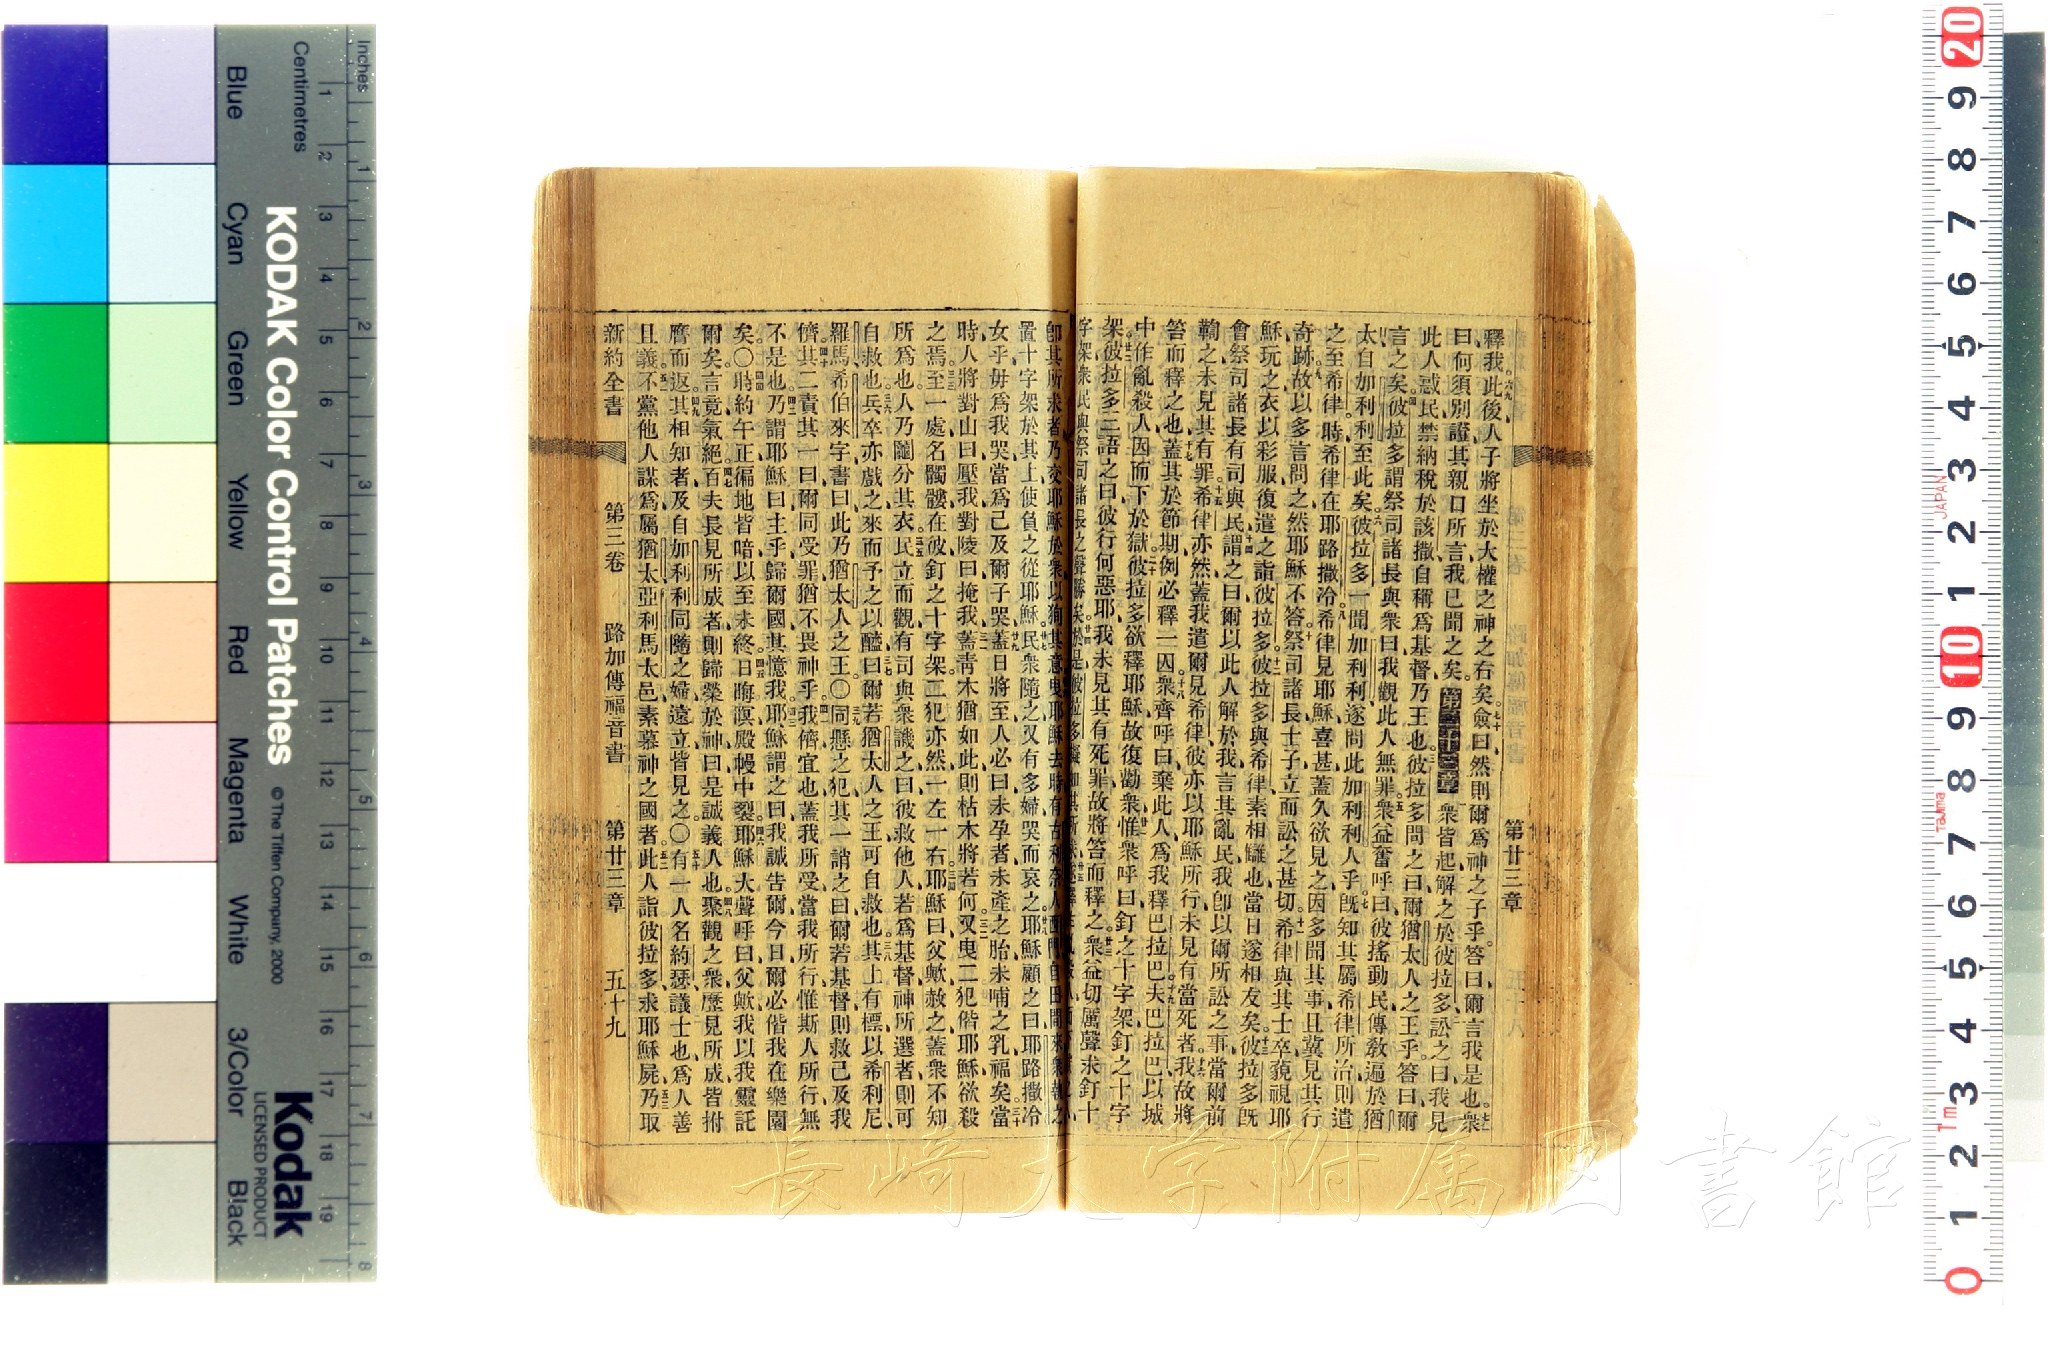 第廿三章
釋我此後人子將坐於大權之神之右矣僉曰然則爾爲神之子乎答曰爾言我是也衆
曰何須別證其親口所言我已聞之矣第二十三章衆皆起解之於彼拉多訟之曰我見
此人惑民禁納稅於該撒自稱爲基督乃王也彼拉多問之曰爾猶太人之王乎答曰爾
言之矣彼拉多謂祭司諸長與衆曰我觀此人無罪衆益奮呼曰彼搖動民傳教遍於猶
太自加利利至此矣彼拉多一聞加利利遂問此加利利人乎旣知其屬希律所治則遣
之至希律時希律在耶路撒冷希律見耶穌喜甚蓋久欲見之因多聞其事且冀見其行
奇跡故以多言問之然耶穌不答祭司諸長士子立而訟之甚切希律與其士卒藐視耶
穌玩之衣以彩服復遣之詣彼拉多彼拉多與希律素相讎也當日遂相友矣彼拉多旣
會祭司諸長有司與民謂之曰爾以此人解於我言其亂民我卽以爾所訟之事當爾前
鞫之未見其有罪希律亦然蓋我遣爾見希律彼亦以耶穌所行未見有當死者我故將
笞而釋之也蓋其於節期例必釋一囚衆齊呼曰棄此人爲我釋巴拉巴夫巴拉巴以城
中作亂殺人因而下於獄彼拉多欲釋耶穌故復勸衆惟衆呼曰釘之十字架釘之十字
架彼拉多三語之曰彼行何惡耶我未見其有死罪故將笞而釋之衆益切厲聲求釘十
字架衆民與祭司諸長之聲勝矣於是彼拉多擬如其所求
卽其所求者乃交耶穌於衆以狥其意曳耶穌去時有古利奈人西門自田間來衆執之
置十字架於其上使負之從耶穌民衆隨之又有多婦哭而哀之耶穌顧之曰耶路撒冷
女乎毋爲我哭當爲己及爾子哭蓋日將至人必曰未孕者未產之胎未哺之乳福矣當
時人將對山曰壓我對陵曰掩我蓋靑木猶如此則枯木將若何又曳二犯偕耶穌欲殺
之焉至一處名髑髏在彼釘之十字架二犯亦然一左一右耶穌曰父歟赦之蓋衆不知
所爲也人乃鬮分其衣民立而觀有司與衆譏之曰彼救他人若爲基督神所選者則可
自救也兵卒亦戲之來而予之以醯曰爾若猶太人之王可自救也其上有標以希利尼
羅馬希伯來字書曰此乃猶太人之王〇同懸之犯其一誚之曰爾若基督則救己及我
儕其二責其一曰爾同受罪猶不畏神乎我儕宜也蓋我所受當我所行惟斯人所行無
不是也乃謂耶穌曰主乎歸爾國其憶我耶穌謂之曰我誠告爾今日爾必偕我在樂園
矣〇時約午正徧地皆暗以至未終日晦冥殿幔中裂耶穌大聲呼曰父歟我以我靈託
爾矣言竟氣絕百夫長見所成者則歸榮於神曰是誠義人也聚觀之衆歷見所成皆拊
膺而返其相知者及自加利利同隨之婦遠立皆見之〇有一人名約瑟議士也爲人善
且義不黨他人謀爲屬猶太亞利馬太邑素慕神之國者此人詣彼拉多求耶穌屍乃取
新約全書 第三卷 路加傳福音書 第廿三章 五十九
KODAK Color Control Patches © The Tiffen Company, 2000
Kodak LICENSED PRODUCT
Inches
Centimetres
Blue Cyan Green Yellow Red Magenta White 3/Color Black
JAPAN
Tajima
長崎大学附属図書館